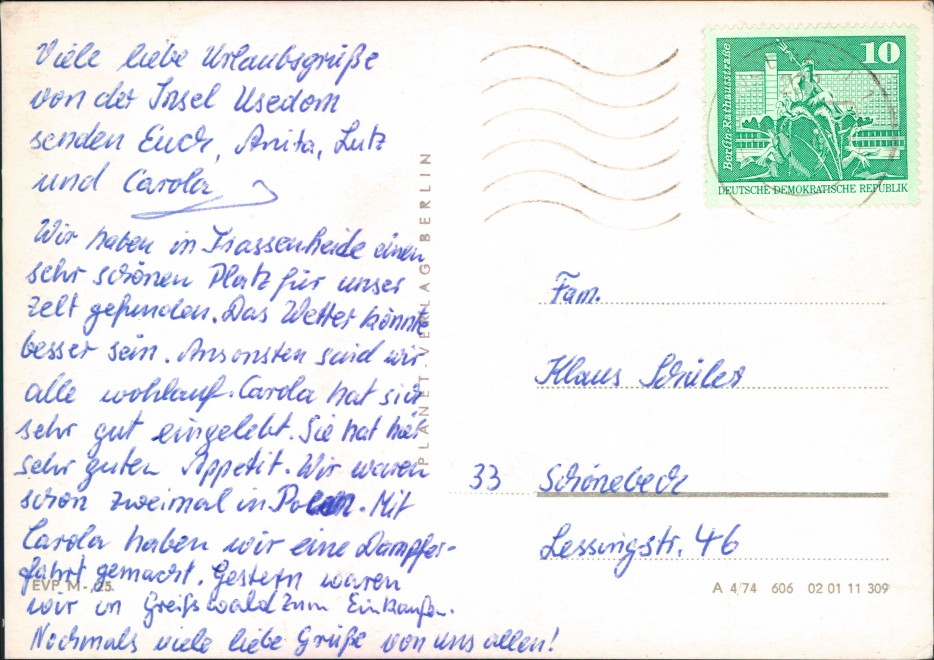 Viele liebe Urlaubsgrüße
von der Insel Usedom
senden Euch, Anita, Lutz
und Carola
Wir haben in Trassenheide einen
sehr schönen Platz für unser
Zelt gefunden. Das Wetter könnte
besser sein. Ansonsten sind wir
alle wohlauf. Carola hat sich
sehr gut eingelebt. Sie hat hier
sehr guten Appetit. Wir waren
schon zweimal in Polen. Mit
Carola haben wir eine Dampfer-
fahrt gemacht. Gestern waren
wir in Greifswald zum Einkaufen.
Nochmals viele liebe Grüße von uns allen!
EVP M -,25
PLANET-VERLAG BERLIN
10
Berlin-Rathausstraße
DEUTSCHE DEMOKRATISCHE REPUBLIK
Fam.
Klaus Schüler
33 Schönebeck
Lessingstr. 46
A 4/74 606 02 01 11 309